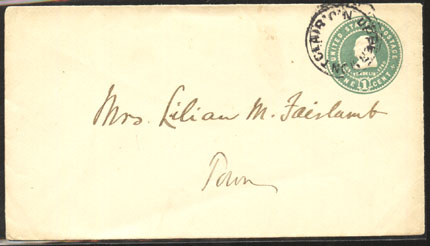 UNITED STATES POSTAGE
FRANKLIN
ONE 1 CENT
Mrs. Lilian M. Fairlamb
Town